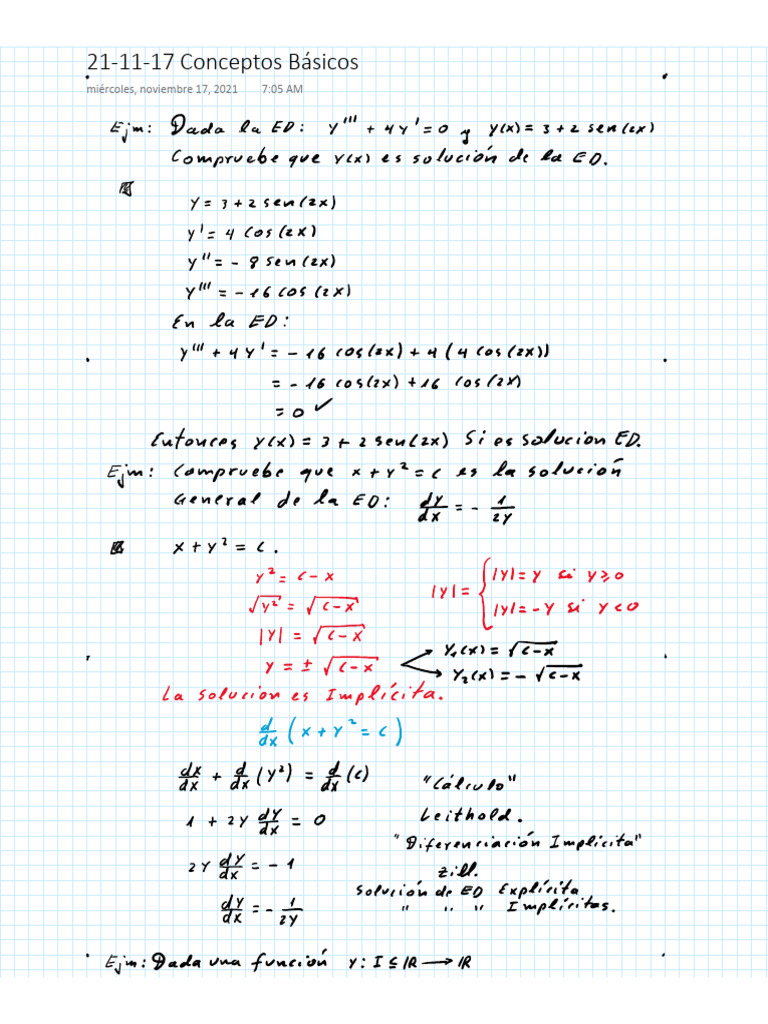 21-11-17 Conceptos Básicos
miércoles, noviembre 17, 2021 7:05 AM
Ejm: Dada la ED: y''' + 4y' = 0 y y(x) = 3 + 2 sen(2x)
Compruebe que y(x) es solución de la ED.
y = 3 + 2 sen(2x)
y' = 4 cos(2x)
y'' = - 8 sen(2x)
y''' = - 16 cos(2x)
En la ED:
y''' + 4y' = - 16 cos(2x) + 4(4 cos(2x))
= - 16 cos(2x) + 16 cos(2x)
= 0 ✓
Entonces y(x) = 3 + 2 sen(2x) Si es solucion ED.
Ejm: Compruebe que x + y² = c es la solución
General de la ED: dy/dx = - 1/2y
x + y² = c.
y² = c - x
√y² = √c-x
|y| = √c-x
y = ± √c-x
|y| = { |y| = y si y ≥ 0
|y| = -y si y < 0
y₁(x) = √c-x
y₂(x) = - √c-x
La solucion es Implícita.
d/dx (x + y² = c)
dx/dx + d/dx (y²) = d/dx (c)
1 + 2y dy/dx = 0
2y dy/dx = - 1
dy/dx = - 1/2y
"Cálculo"
Leithold.
"Diferenciación Implícita"
Zill.
Solución de ED Explícita
" " " Implícitas.
Ejm: Dada una función y: I ⊆ ℝ ⟶ ℝ